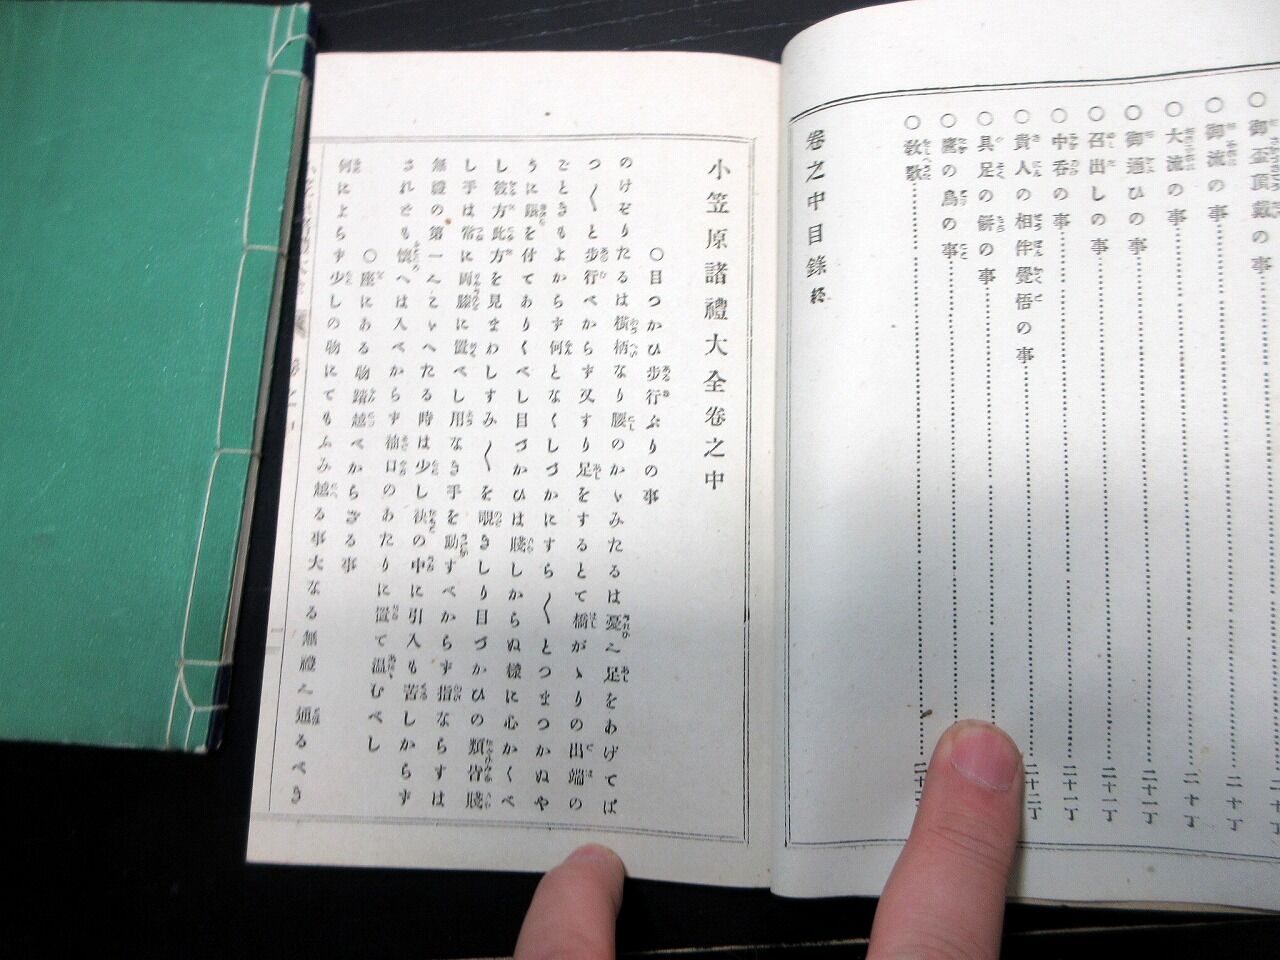 ○御盃頂戴の事
○御流の事
○大流の事
○御通ひの事
○召出しの事
○中呑の事
○貴人の相伴覺悟の事
○具足の餅の事
○鷹の鳥の事
○敎歌
卷之中目錄終
小笠原諸禮大全卷之中
○目つかひ歩行ぶりの事
のけぞりたるは横柄なり腰のかゞみたるは憂へ足をあげてば
つ〳〵と歩行べからず又すり足をするとて橋がゝりの出端の
ごときもよからず何となくしづかにすら〳〵とつまつかぬや
うに眼を付てありくべし目づかひは賤しからぬ樣に心かくべ
し彼方此方を見まわしすみ〴〵を覗きしり目づかひの類皆賤
し手は常に兩膝に置べし用なき手を動すべからず指ならすは
無禮の第一へこゞへたる時は少し袂の中に引入も苦しからず
されども懷へは入べからず袖口のあたりに置て温むべし
○座にある物踏越べからざる事
何によらず少しの物にてもふみ越る事大なる無禮へ通るべき